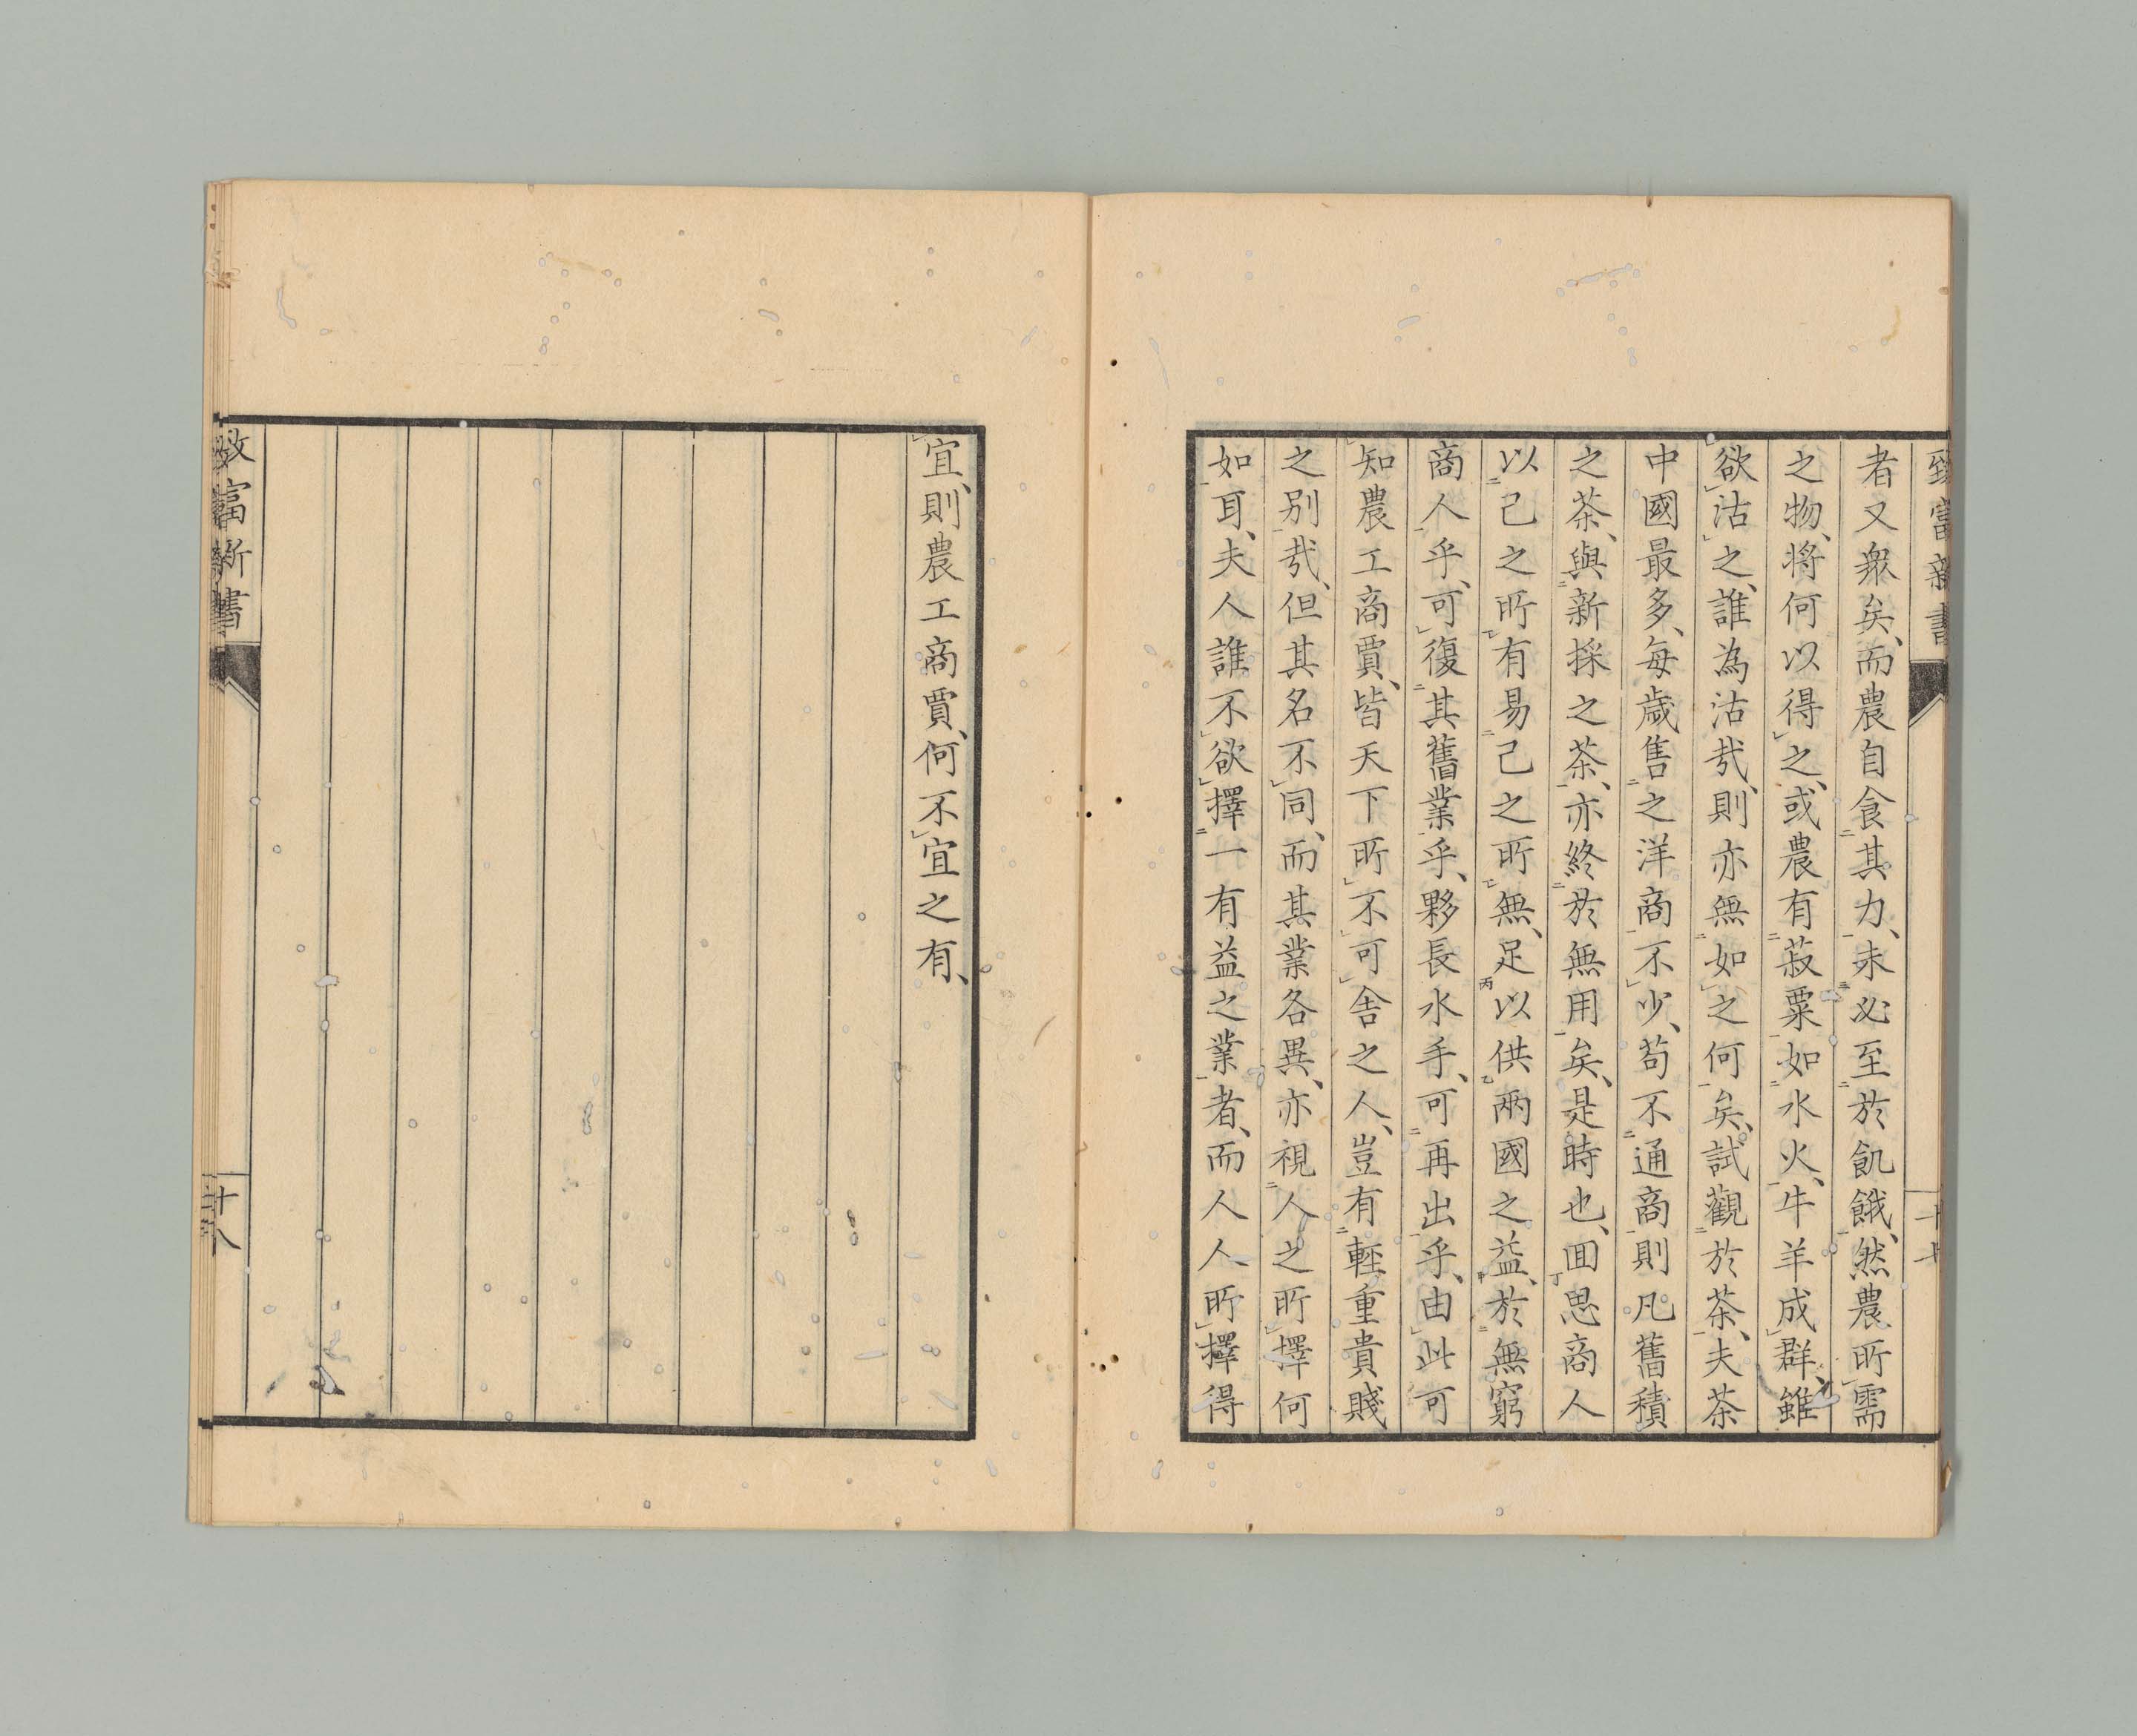 致富新書
十七
者又衆矣、而農自食其力、未必至於飢餓、然農所需
之物、將何以得之、或農有菽粟如水火、牛羊成群、雖
欲沽之、誰為沽哉、則亦無如之何矣、試觀於茶、夫茶
中國最多、每歲售之洋商不少、苟不通商則凡舊積
之茶、與新採之茶、亦終於無用矣、是時也、回思商人
以己之所有易己之所無、足以供兩國之益、於無窮
商人乎、可復其舊業乎、夥長水手、可再出乎、由此可
知農工商賈、皆天下所不可舍之人、豈有輕重貴賤
之別哉、但其名不同、而其業各異、亦視人之所擇何
如耳、夫人誰不欲擇一有益之業者、而人人所擇得
宜、則農工商賈、何不宜之有、
致富新書
十八